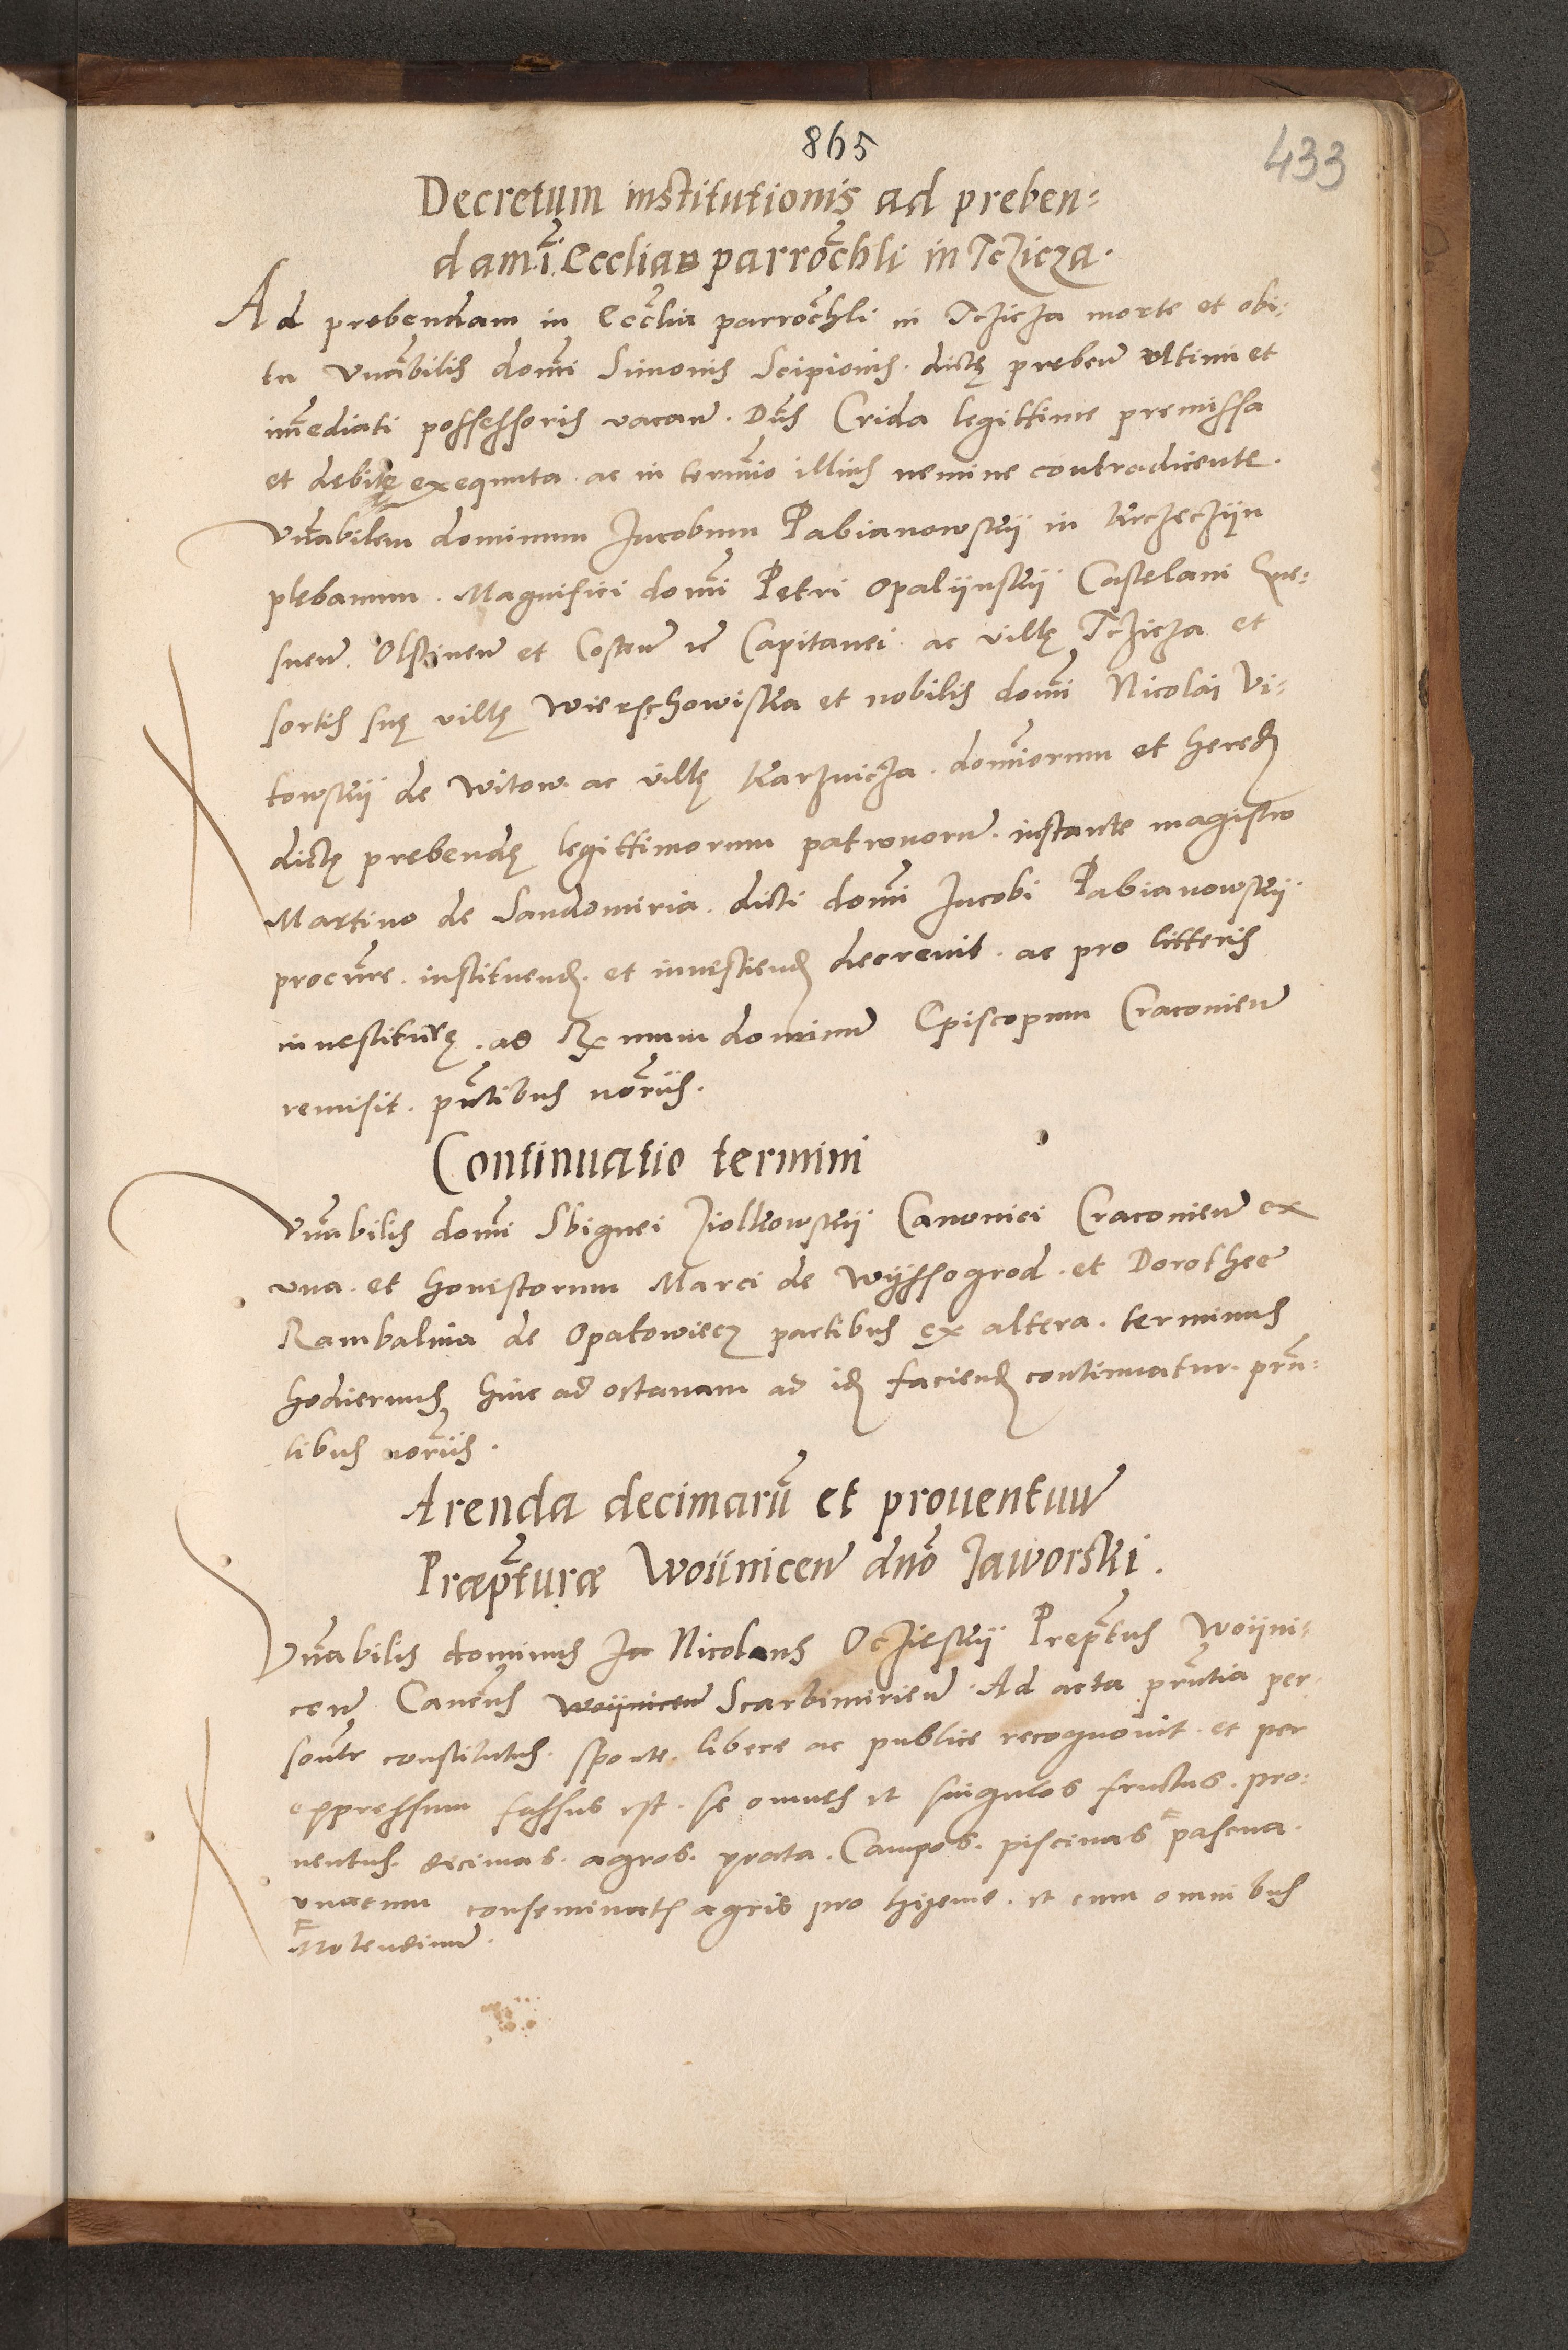 865
433
Decretum institutionis ad preben=
dam in Ecclia parrochli in Tczicza.
Ad prebendam in Ecclia parrochli in Tczicza morte et obi=
tu Vnabilis domi Simonis Scipionis. dictę preben ultimi et
immediati possessoris vacan. Dns Crida legittime premissa
et debite exequuta. ac in termio illius nemine contradicente.
Vnabilem dominum Jacobum Pabianowskij in Krczeczijn
plebanum. Magnifici domi Petri Opalijnskij Castelani Gne=
snen. Olstinen et Costen et Capitanei. ac villę Tczicza et
sortis suę villę Wierschowiska et nobilis domi Nicolai Vi=
towskij de Witow. ac villę Karznicza. dominorum et hered
dictę prebendę legittimorum patronorum. instante magistro
Martino de Sandomiria. dicti domi Jacobi Pabianowskij
procure. instituend. et investiend decrevit. ac pro litteris
investiturę. ad Rx mum dominum Episcopum Cracovien
remisit. pntibus noriis.
Continuatio termini
Vnabilis domi Sbignei Ziolkowskij Canonici Cracovien ex
vna. et honestorum Marci de Wyssogrod. et Dorothee
Rambalina de Opatowiecz partibus ex altera. terminus
hodiernus hinc ad octavam ad id faciend continuatur. prn=
tibus noriis.
Arenda decimarum et proventuum
Præpturæ Woijnicen dno Jaworski.
Vnabilis dominus Ja Nicolaus Oczieskij Preptus Woijni=
cen Cancus Woijnicen Scarbimirien. Ad acta prntia per
sonlr constitutus. sponte. libere ac publice recognovit. et per
expressum fassus est. se omnes et singulos fructus. pro=
ventus. decimas. agros. prata. Campos. piscinas pascua.
vnacum conseminatis agris pro hijeme. et cum omnibus
Molendinum.